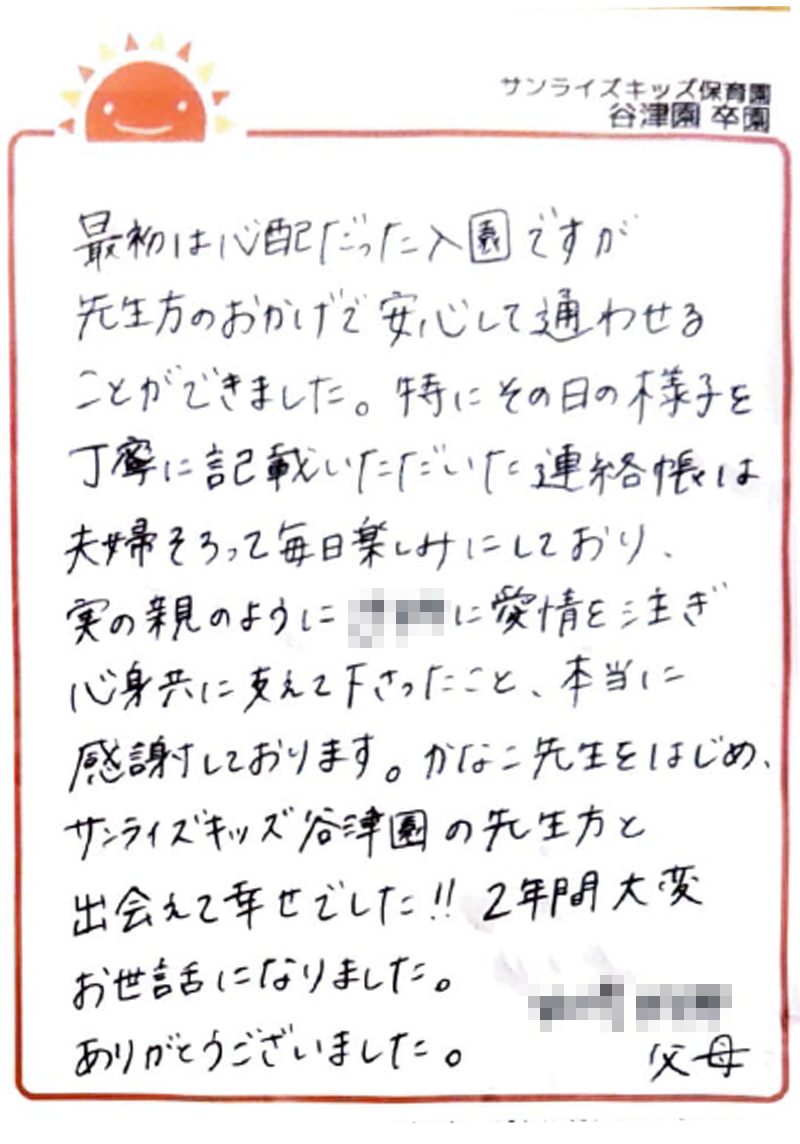 サンライズキッズ保育園
谷津園 卒園
最初は心配だった入園ですが
先生方のおかげで安心して通わせる
ことができました。特にその日の様子を
丁寧に記載いただいた連絡帳は
夫婦そろって毎日楽しみにしており、
実の親のように に愛情を注ぎ
心身共に支えて下さったこと、本当に
感謝しております。かなこ先生をはじめ、
サンライズキッズ谷津園の先生方と
出会えて幸せでした!! 2年間大変
お世話になりました。
ありがとうございました。
父母